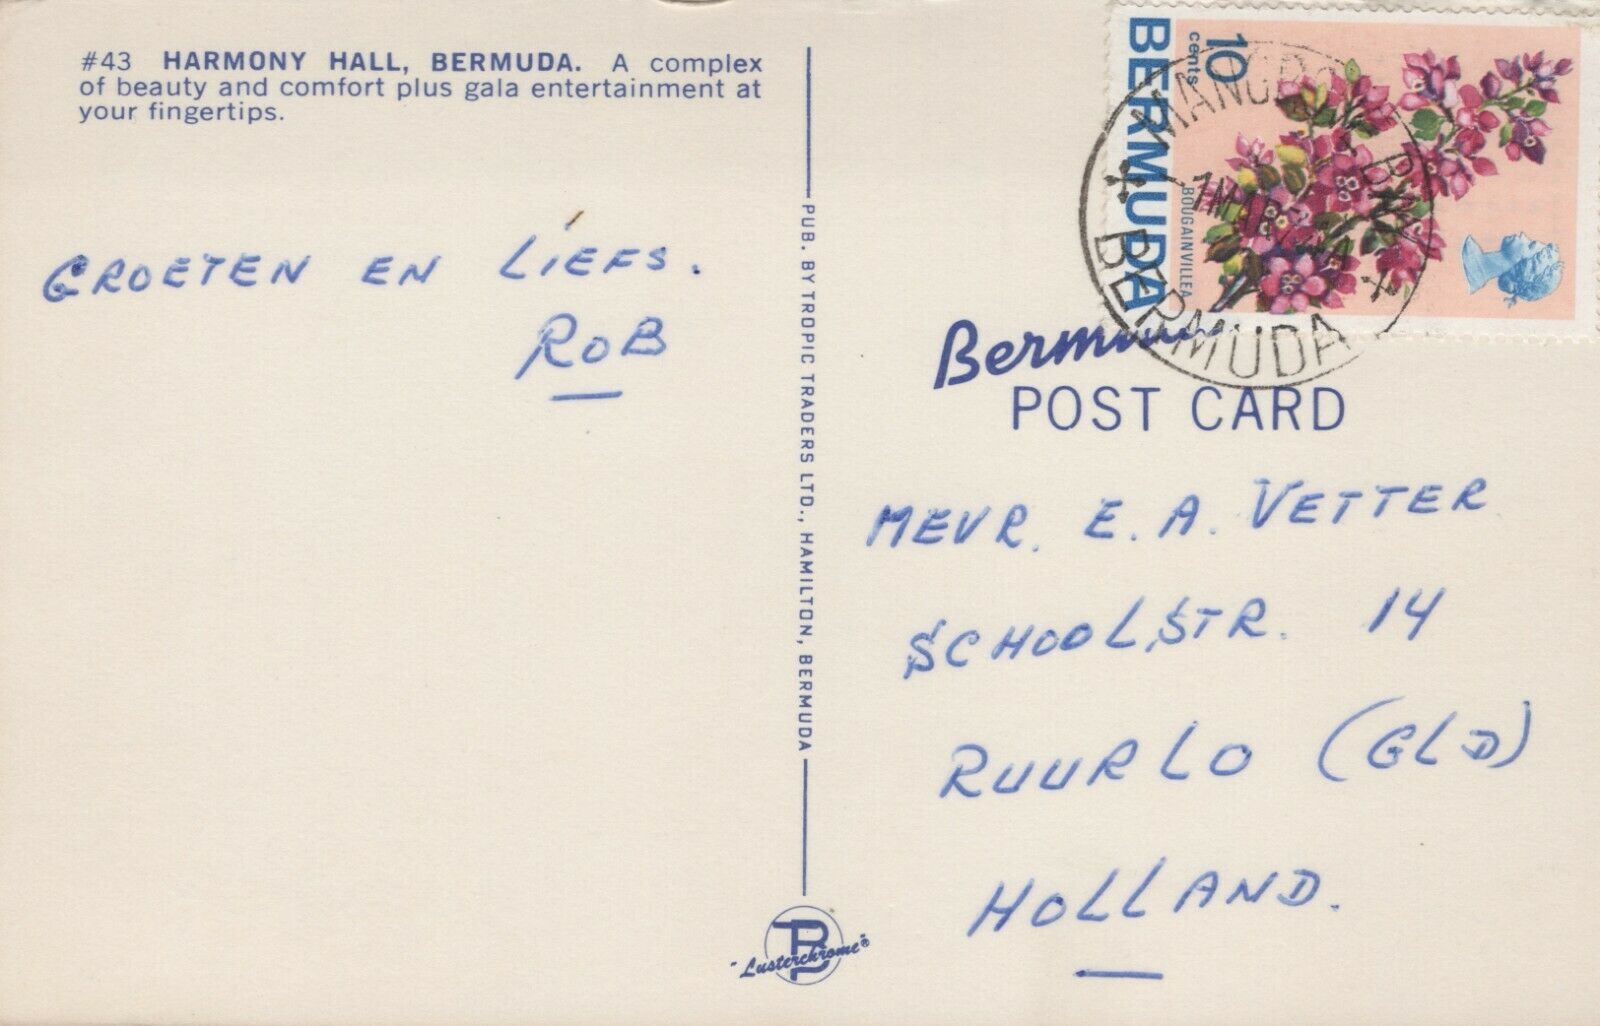 #43 HARMONY HALL, BERMUDA. A complex
of beauty and comfort plus gala entertainment at
your fingertips.
GROETEN EN LIEFS.
ROB
PUB. BY TROPIC TRADERS LTD., HAMILTON, BERMUDA
"Lusterchrome"®
10
cents
BERMUDA
BOUGAINVILLEA
MANGROVE BAY
BERMUDA
Bermuda
POST CARD
MEVR. E. A. VETTER
SCHOOLSTR. 14
RUURLO (GLD)
HOLLAND.